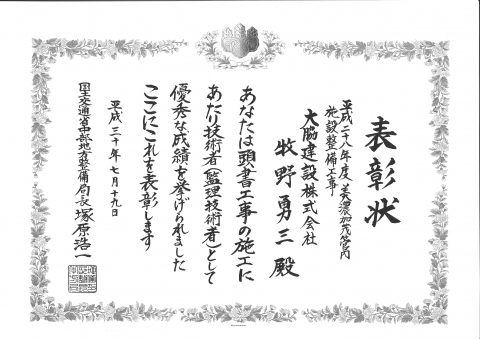 表彰状
平成二十八年度 美濃加茂管内
施設整備工事
大脇建設株式会社
牧野勇三殿
あなたは頭書工事の施工に
あたり技術者(監理技術者)として
優秀な成績を挙げられました
ここにこれを表彰します
平成三十年七月十九日
国土交通省中部地方整備局長 塚原浩一